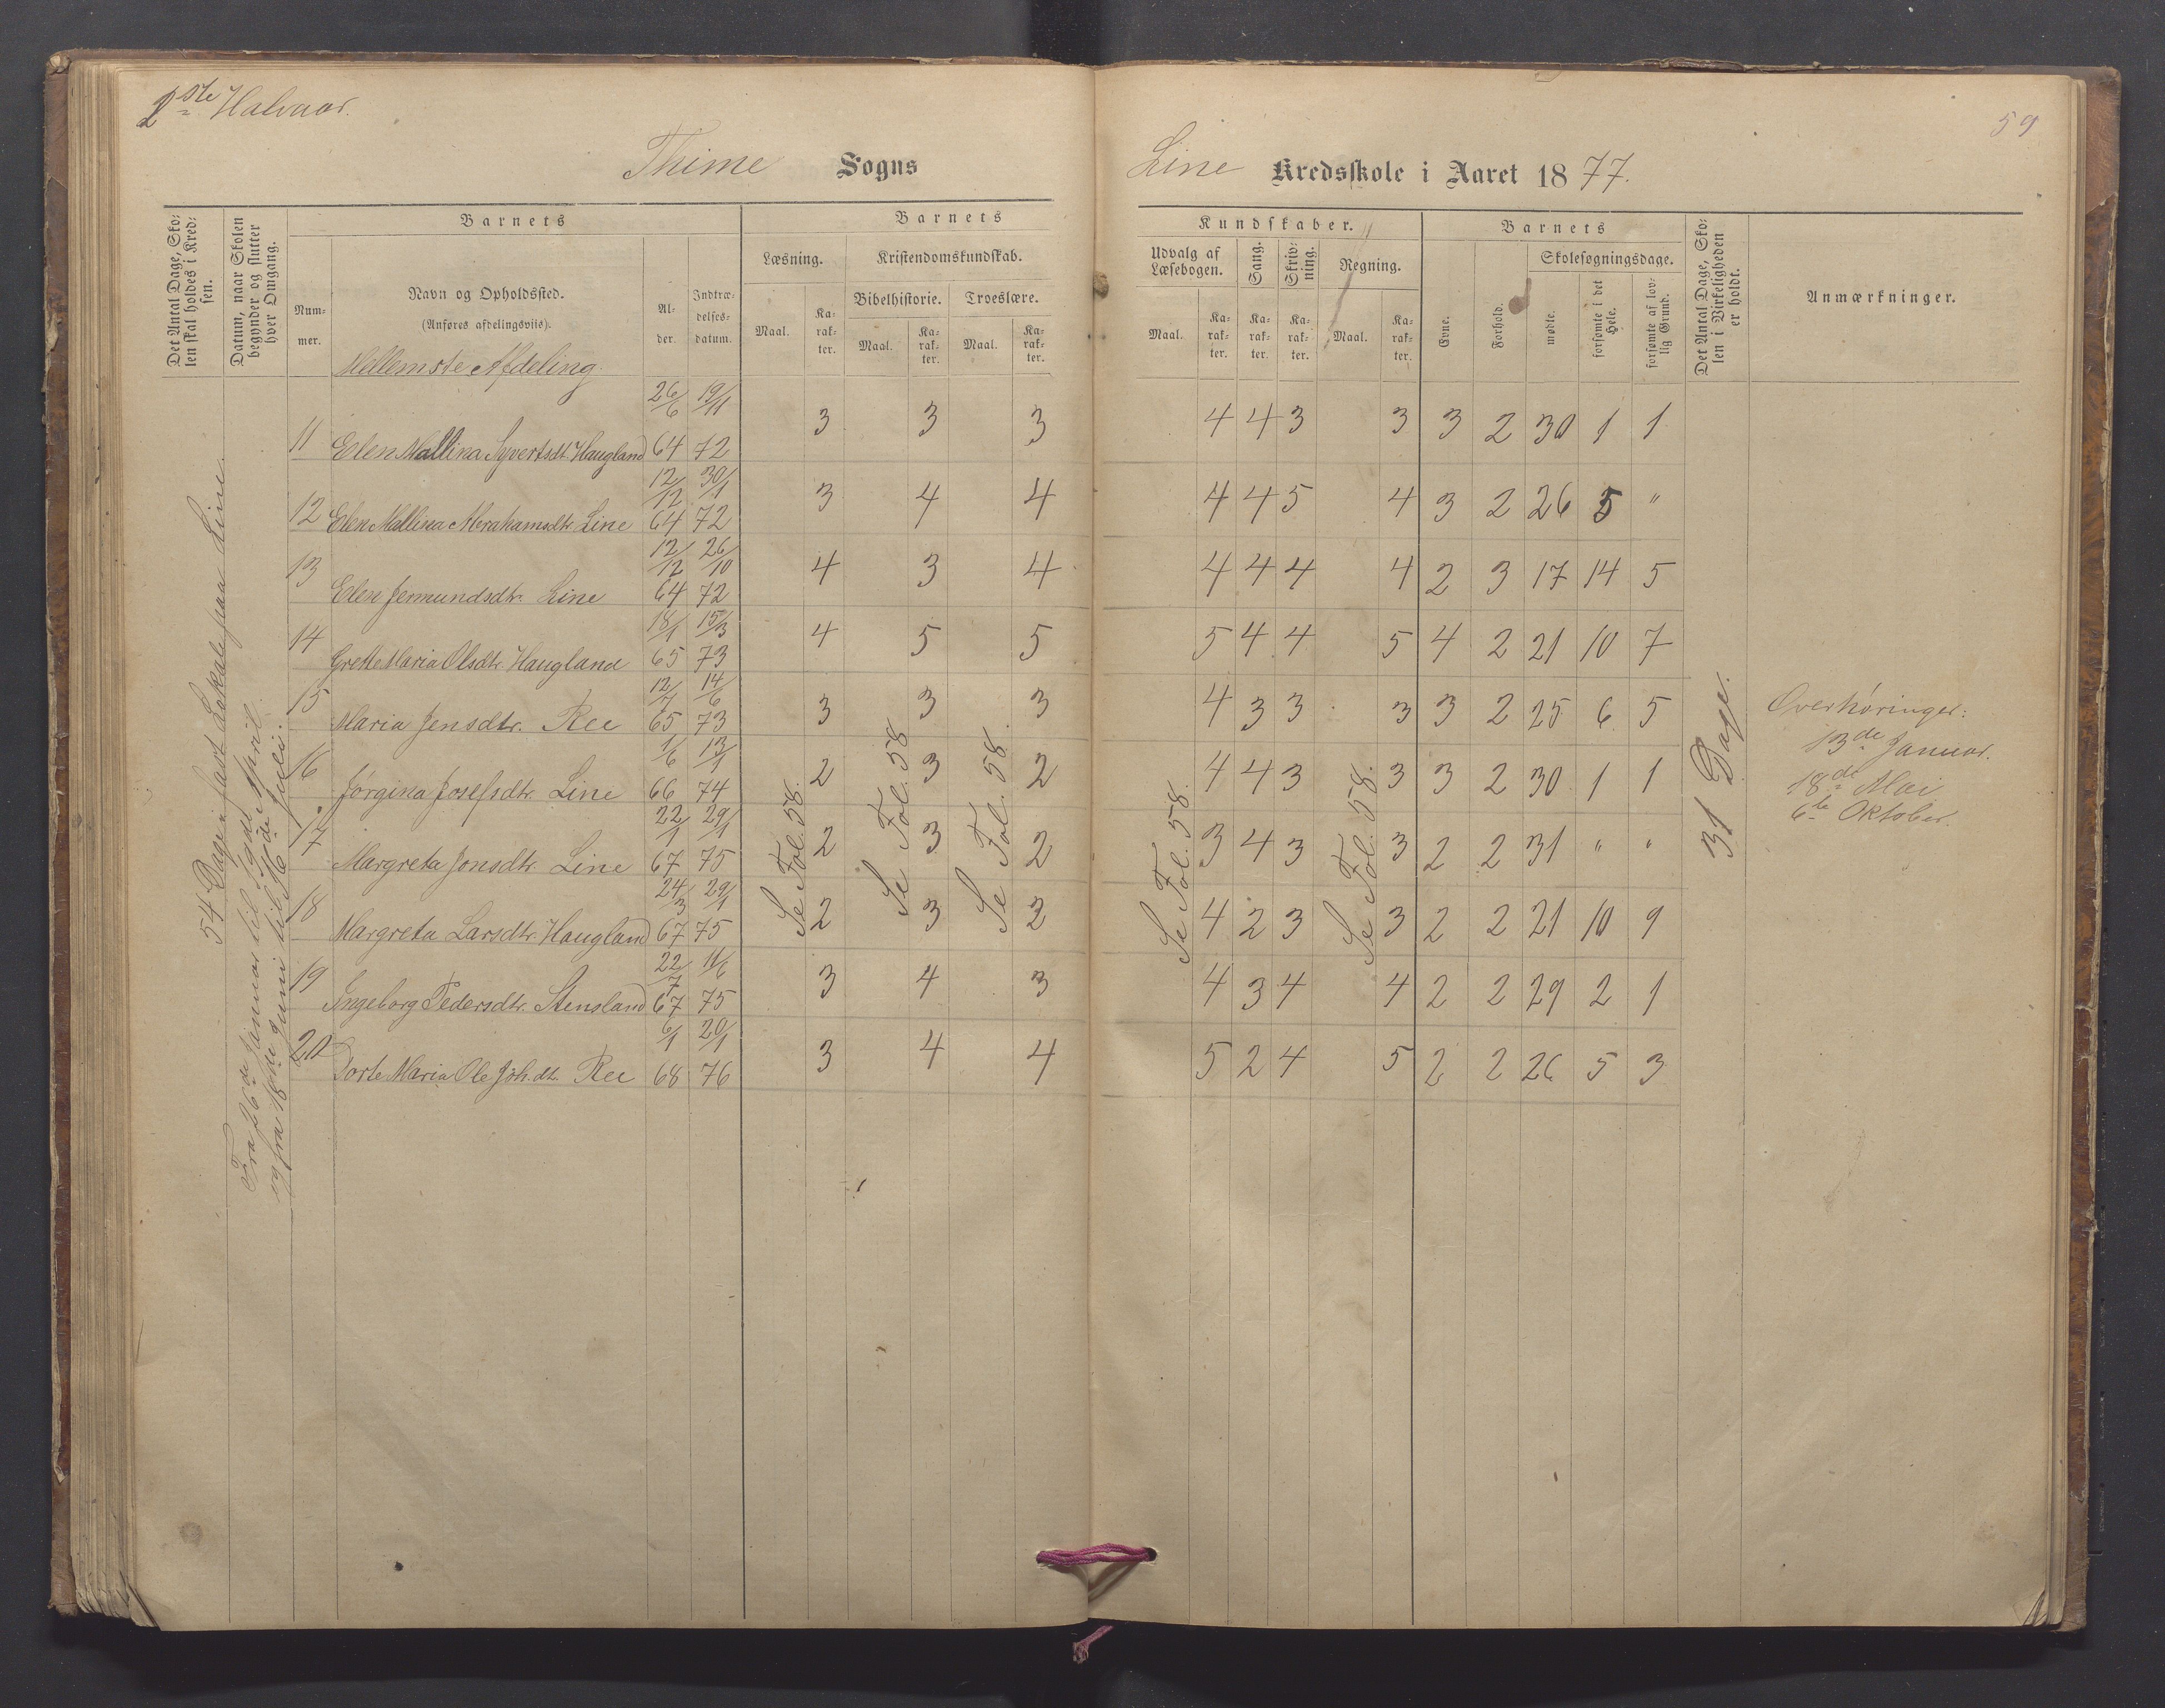 1ste Halvaar.
59
Thime Sogns
Line Kredsskole i Aaret 1877.
Det Antal Dage, Skolen skal holdes i Kredsen.
Datum, naar Skolen begynder og slutter hver Omgang.
Barnets
Nummer.
Navn og Opholdssted.
(Anføres afdelingsviis).
Mellemste Afdeling.
Alder.
Indtrædelsesdatum.
Barnets
Læsning.
Kristendomskundskab.
Bibelhistorie. Troeslære.
Maal. Karakter. Maal. Karakter. Maal. Karakter.
Kundskaber.
Udvalg af Læsebogen. Sang. Skrivning. Regning.
Maal. Karakter. Karakter. Karakter. Maal. Karakter.
Barnets
Evne. Forhold. Skolesøgningsdage.
mødte. forsømte i det Hele. forsømte af lovlig Grund.
Det Antal Dage, Skolen i Virkeligheden er holdt.
Anmærkninger.
54 Dage i fast Lokale paa Line.
Fra 26de Januar til April
og fra 18de Juni til Juli.
11 Elen Mallina Syvertsdt. Haugland 26/6 64 19/11 72 3 3 3 4 4 3 3 3 2 30 1 1
12 Elen Mallina Abrahamsdtr. Line 12/12 64 30/1 72 3 4 4 4 4 5 4 3 2 26 5 "
13 Elen Jermundsdtr. Line 12/12 64 26/10 72 4 3 4 4 4 4 4 2 3 17 14 5
14 Grethe Maria Olsdtr. Haugland 18/1 65 15/3 73 4 5 5 5 4 4 5 4 2 21 10 7
15 Maria Jensdtr. Ree 12/7 65 14/6 73 3 3 3 4 3 3 3 3 2 25 6 5
16 Jørgina Josefsdtr. Line 1/6 66 13/1 74 2 3 2 4 4 3 3 3 2 30 1 1
17 Margreta Jonsdtr. Line 22/1 67 29/1 75 2 3 2 3 4 3 3 2 2 31 " "
18 Margreta Larsdtr. Haugland 24/3 67 29/1 75 2 3 2 4 2 3 3 2 2 21 10 9
19 Ingeborg Pedersdtr. Stensland 22/7 67 11/6 75 3 4 3 4 3 4 4 2 2 29 2 1
20 Dorte Maria Ole Joh.dt. Ree 6/1 68 20/1 76 3 4 4 5 2 4 5 2 2 26 5 3
Se Fol. 58.
Se Fol. 58
Se Fol. 58.
Se Fol. 58.
Se Fol. 58.
31 Dage.
Overhøringer:
13de Januar.
18de Mai
6te Oktober.